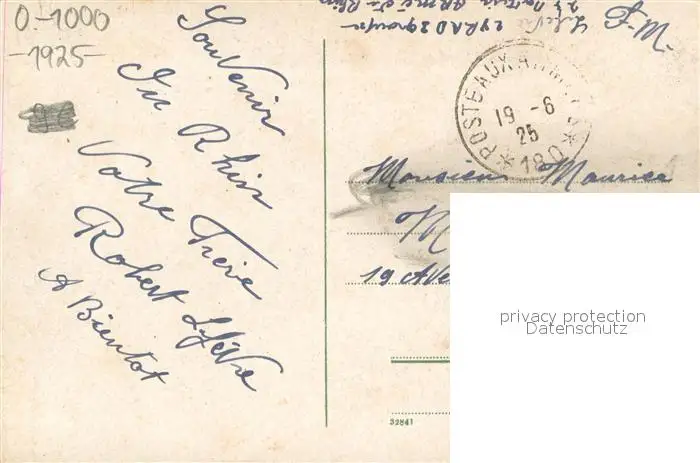 0-1000
-1925-
Souvenir
Du Rhin
Votre Frère
Robert Lefèvre
A Bientot
Armée du Rhin
2 groupe
POSTE AUX ARMEES
19 -6
25
* 180 *
Monsieur Maurice
M
19 Ave
32841
privacy protection
Datenschutz